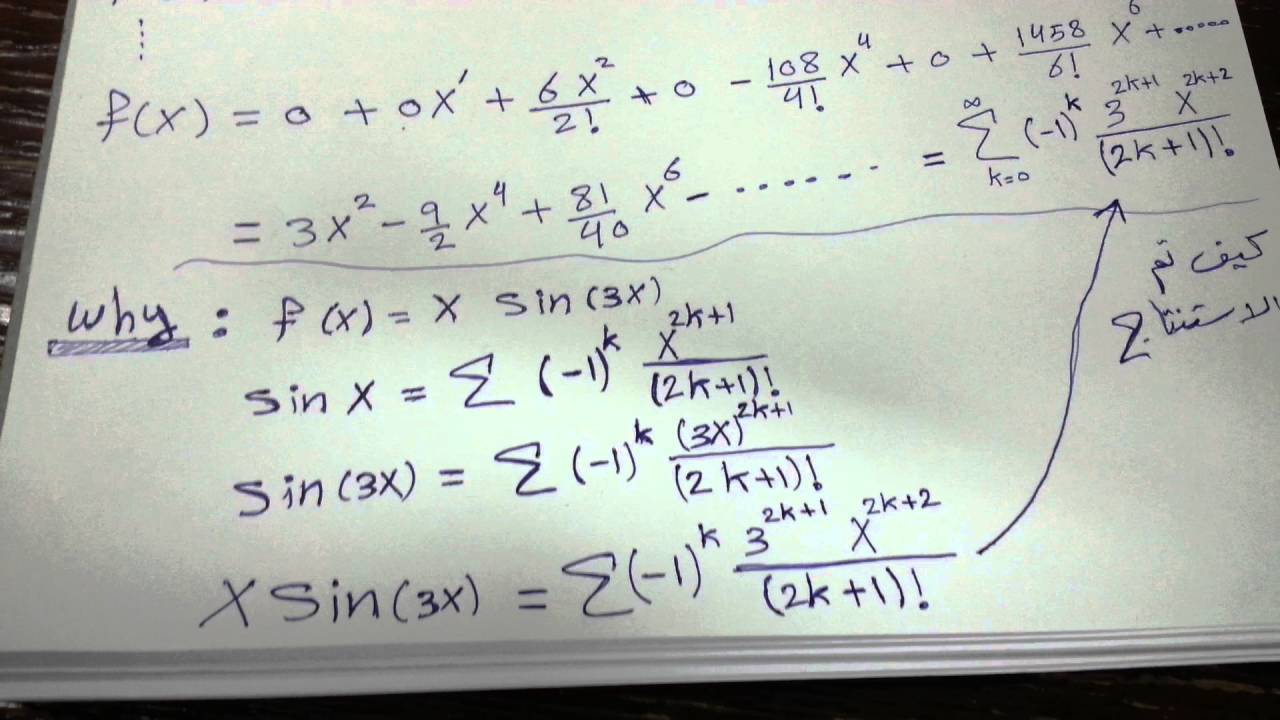 ⋮
f(x) = 0 + 0x' + 6x²/2! + 0 - 108/4! x⁴ + 0 + 1458/6! x⁶ + .....
= 3x² - 9/2 x⁴ + 81/40 x⁶ - ....... = ∑_{k=0}^{∞} (-1)^k 3^{2k+1} x^{2k+2}/(2k+1)!
كيف تم
الاستنتاج
Why : f(x) = x sin(3x)
sin x = ∑ (-1)^k x^{2k+1}/(2k+1)!
sin(3x) = ∑ (-1)^k (3x)^{2k+1}/(2k+1)!
x sin(3x) = ∑ (-1)^k 3^{2k+1} x^{2k+2}/(2k+1)!